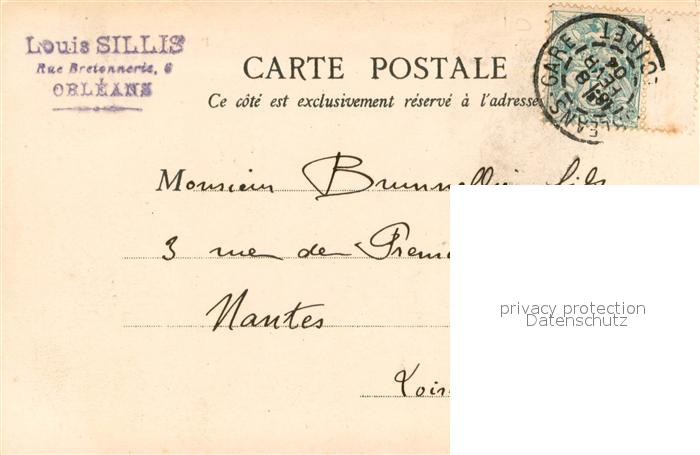 Louis SILLIS
Rue Bretonnerie, 6
ORLÉANS
CARTE POSTALE
Ce côté est exclusivement réservé à l'adresse
ORLÉANS GARE LOIRET
Monsieur fils
3 rue de
Nantes
Loire
privacy protection
Datenschutz